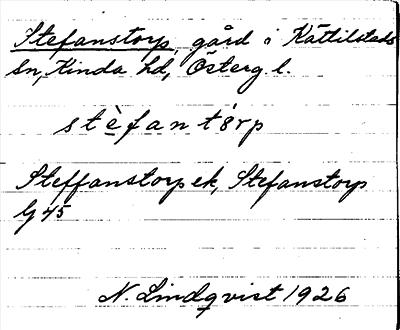 Stefanstorp, gård i Kättilstads
Sn, Kinda hd, Österg. l.
stèfantórp
Steffanstorp ek, Stefanstorp
Lj 45
N. Lindqvist 1926